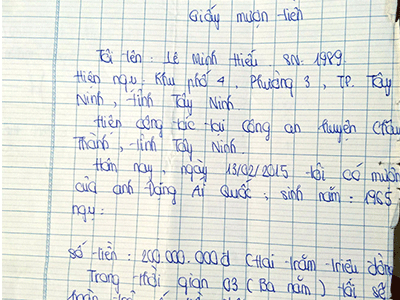 Giấy mượn tiền
Tôi tên: Lê Minh Hiếu. SN: 1989.
Hiện ngụ: Khu phố 4, Phường 3, TP. Tây
Ninh, tỉnh Tây Ninh.
Hiện công tác tại Công an huyện Châu
Thành, tỉnh Tây Ninh.
Hôm nay, ngày 13/02/2015 tôi có mượn
của anh Đặng Ái Quốc, sinh năm: 1965
ngụ:
số tiền: 200.000.000đ (Hai trăm triệu đồng
Trong thời gian 03 (Ba năm) tôi sẽ